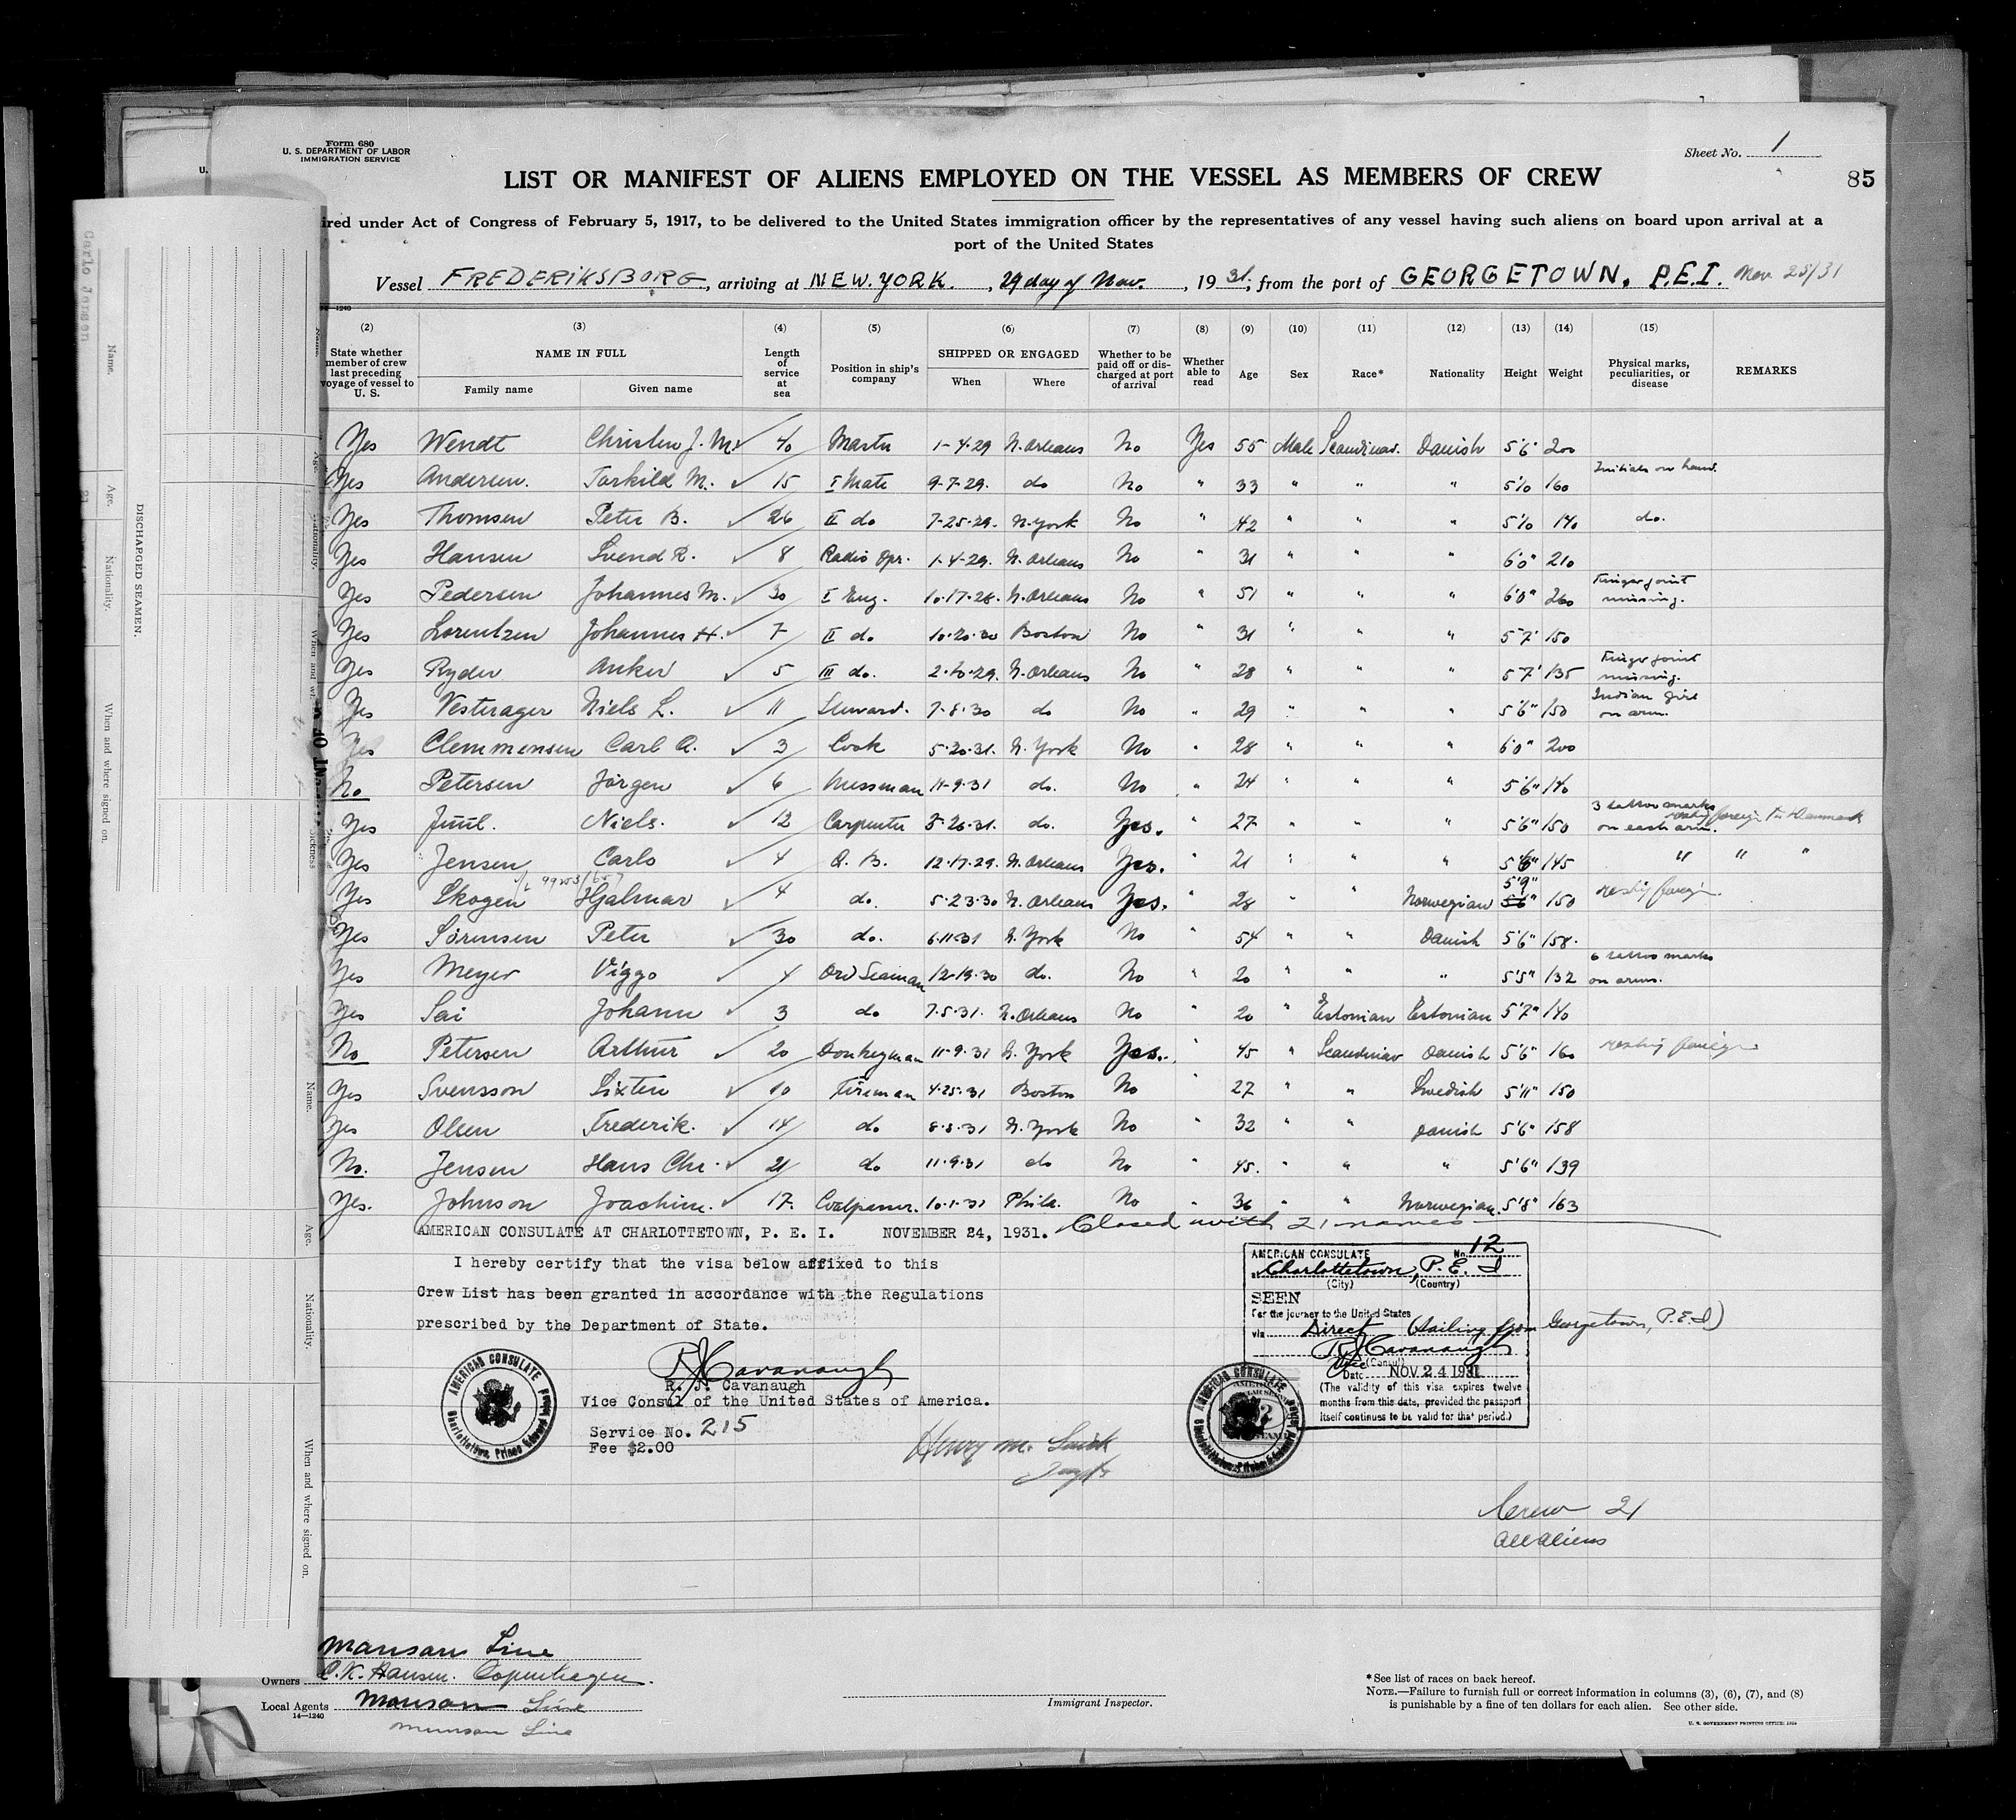 Form 680
U. S. DEPARTMENT OF LABOR
IMMIGRATION SERVICE
Sheet No. 1
LIST OR MANIFEST OF ALIENS EMPLOYED ON THE VESSEL AS MEMBERS OF CREW
85
ired under Act of Congress of February 5, 1917, to be delivered to the United States immigration officer by the representatives of any vessel having such aliens on board upon arrival at a
port of the United States
Vessel FREDERIKSBORG, arriving at NEW.YORK., 29 day of Nov., 1931, from the port of GEORGETOWN, P.E.I. Nov 25/31
(2) (3) (4) (5) (6) (7) (8) (9) (10) (11) (12) (13) (14) (15)
State whether member of crew last preceding voyage of vessel to U. S. | NAME IN FULL | Family name | Given name | Length of service at sea | Position in ship's company | SHIPPED OR ENGAGED | When | Where | Whether to be paid off or discharged at port of arrival | Whether able to read | Age | Sex | Race* | Nationality | Height | Weight | Physical marks, peculiarities, or disease | REMARKS
Yes Wendt Christen J. M. 40 Master 1-4-29 N.Orleans No Yes 55 Male Scandinav. Danish 5'6" 200
Yes Andersen. Torkild M. 15 I Mate 9-7-29. do No " 33 " " " 5'10 160 Initials on hand.
Yes Thomsen Peter B. 26 II do 7-25-29. N.York No " 42 " " " 5'10 140 do.
Yes Hansen Svend R. 8 Radio Opr. 1-4-29. N.Orleans No " 31 " " " 6'0" 210
Yes Pedersen Johannes M. 30 I Eng. 10-17-28. N.Orleans No " 51 " " " 6'0" 260 Finger joint missing.
Yes Lorentzen Johannes H. 7 II do. 10-20-30 Boston No " 31 " " " 5'7" 150
Yes Ryder Anker 5 III do. 2-10-29. N.Orleans No " 28 " " " 5'7" 135 Finger joint missing.
Yes Vesterager Niels L. 11 Steward. 7-8-30 do No " 29 " " " 5'6" 150 Indian girl on arm.
Yes Clemmensen Carl A. 3 Cook 5-20-31. N.York No " 28 " " " 6'0" 200
No Petersen Jörgen 6 Messman 11-9-31 do. No " 24 " " " 5'6" 140
Yes Juul. Niels. 12 Carpenter 8-26-31. do. Yes. " 27 " " " 5'6" 150 3 tattoo marks on each arm. reship foreign to Denmark
Yes Jensen Carlo 4 A. B. 12-17-29. N.Orleans Yes. " 21 " " " 5'6" 145 " " "
99253/657
Yes Skogen Hjalmar 4 do. 5-23-30 N.Orleans Yes. " 28 " " Norwegian 5'9" 5'6" 150 reship foreign
Yes Sörensen Peter 30 do. 6-11-31 N.York No " 54 " " Danish 5'6" 158.
Yes Meyer Viggo 4 Ord Seaman 12-19-30 do. No " 20 " " " 5'5" 132 6 tattoo marks on arms.
Yes Sai Johann 3 do 7-5-31. N.Orleans No " 20 " Estonian Estonian 5'7" 140
No Petersen Arthur 20 Donkeyman 11-9-31 N.York Yes. " 45 " Scandinav Danish 5'6" 160 reship foreign
Yes Svensson Sixten 10 Fireman 4-25-31 Boston No " 27 " Swedish 5'11" 150
Yes Olsen Frederik. 14 do 8-8-31 N.York No " 32 " " Danish 5'6" 158
No. Jensen Hans Chr. 21 do 11-9-31 do No " 45. " " " 5'6" 139
Yes. Johnson Joachim. 17. Coalpasser. 10-1-31 Phila. No " 36 " " Norwegian. 5'8" 163
AMERICAN CONSULATE AT CHARLOTTETOWN, P. E. I. NOVEMBER 24, 1931. Closed with 21 names
I hereby certify that the visa below affixed to this
Crew List has been granted in accordance with the Regulations
prescribed by the Department of State.
R J Cavanaugh
R. J. Cavanaugh
Vice Consul of the United States of America.
Service No. 215
Fee $2.00
AMERICAN CONSULATE Charlottetown, Prince Edward Island
Henry M.
AMERICAN CONSULATE No. 12
at Charlottetown, P. E. I
(City) (Country)
SEEN
For the journey to the United States
via Direct (Sailing from Georgetown, P.E.I)
R J Cavanaugh
Vice (Consul)
Date NOV. 24 1931
(The validity of this visa expires twelve
months from this date, provided the passport
itself continues to be valid for that period.)
AMERICAN CONSULATE
Crew 21
all aliens
Munson Line
Owners C.K. Hansen. Copenhagen.
Local Agents Munson Line
14—1240
Munson Line
Immigrant Inspector.
*See list of races on back hereof.
NOTE.—Failure to furnish full or correct information in columns (3), (6), (7), and (8)
is punishable by a fine of ten dollars for each alien. See other side.
U. S. GOVERNMENT PRINTING OFFICE
Carlo Jensen
Name.
Age.
Nationality.
When and where signed on.
DISCHARGED SEAMEN.
Name.
Age.
Nationality.
When and where signed on.